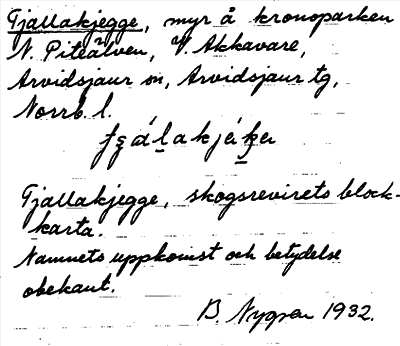 Tjallakjegge, myr å kronoparken
N. Piteälven, V. Akkavare,
Arvidsjaur sn, Arvidsjaur tg,
Norrb. l.
Tjallakjegge, skogsrevirets block-
karta.
Namnets uppkomst och betydelse
obekant.
B. Nygren 1932.